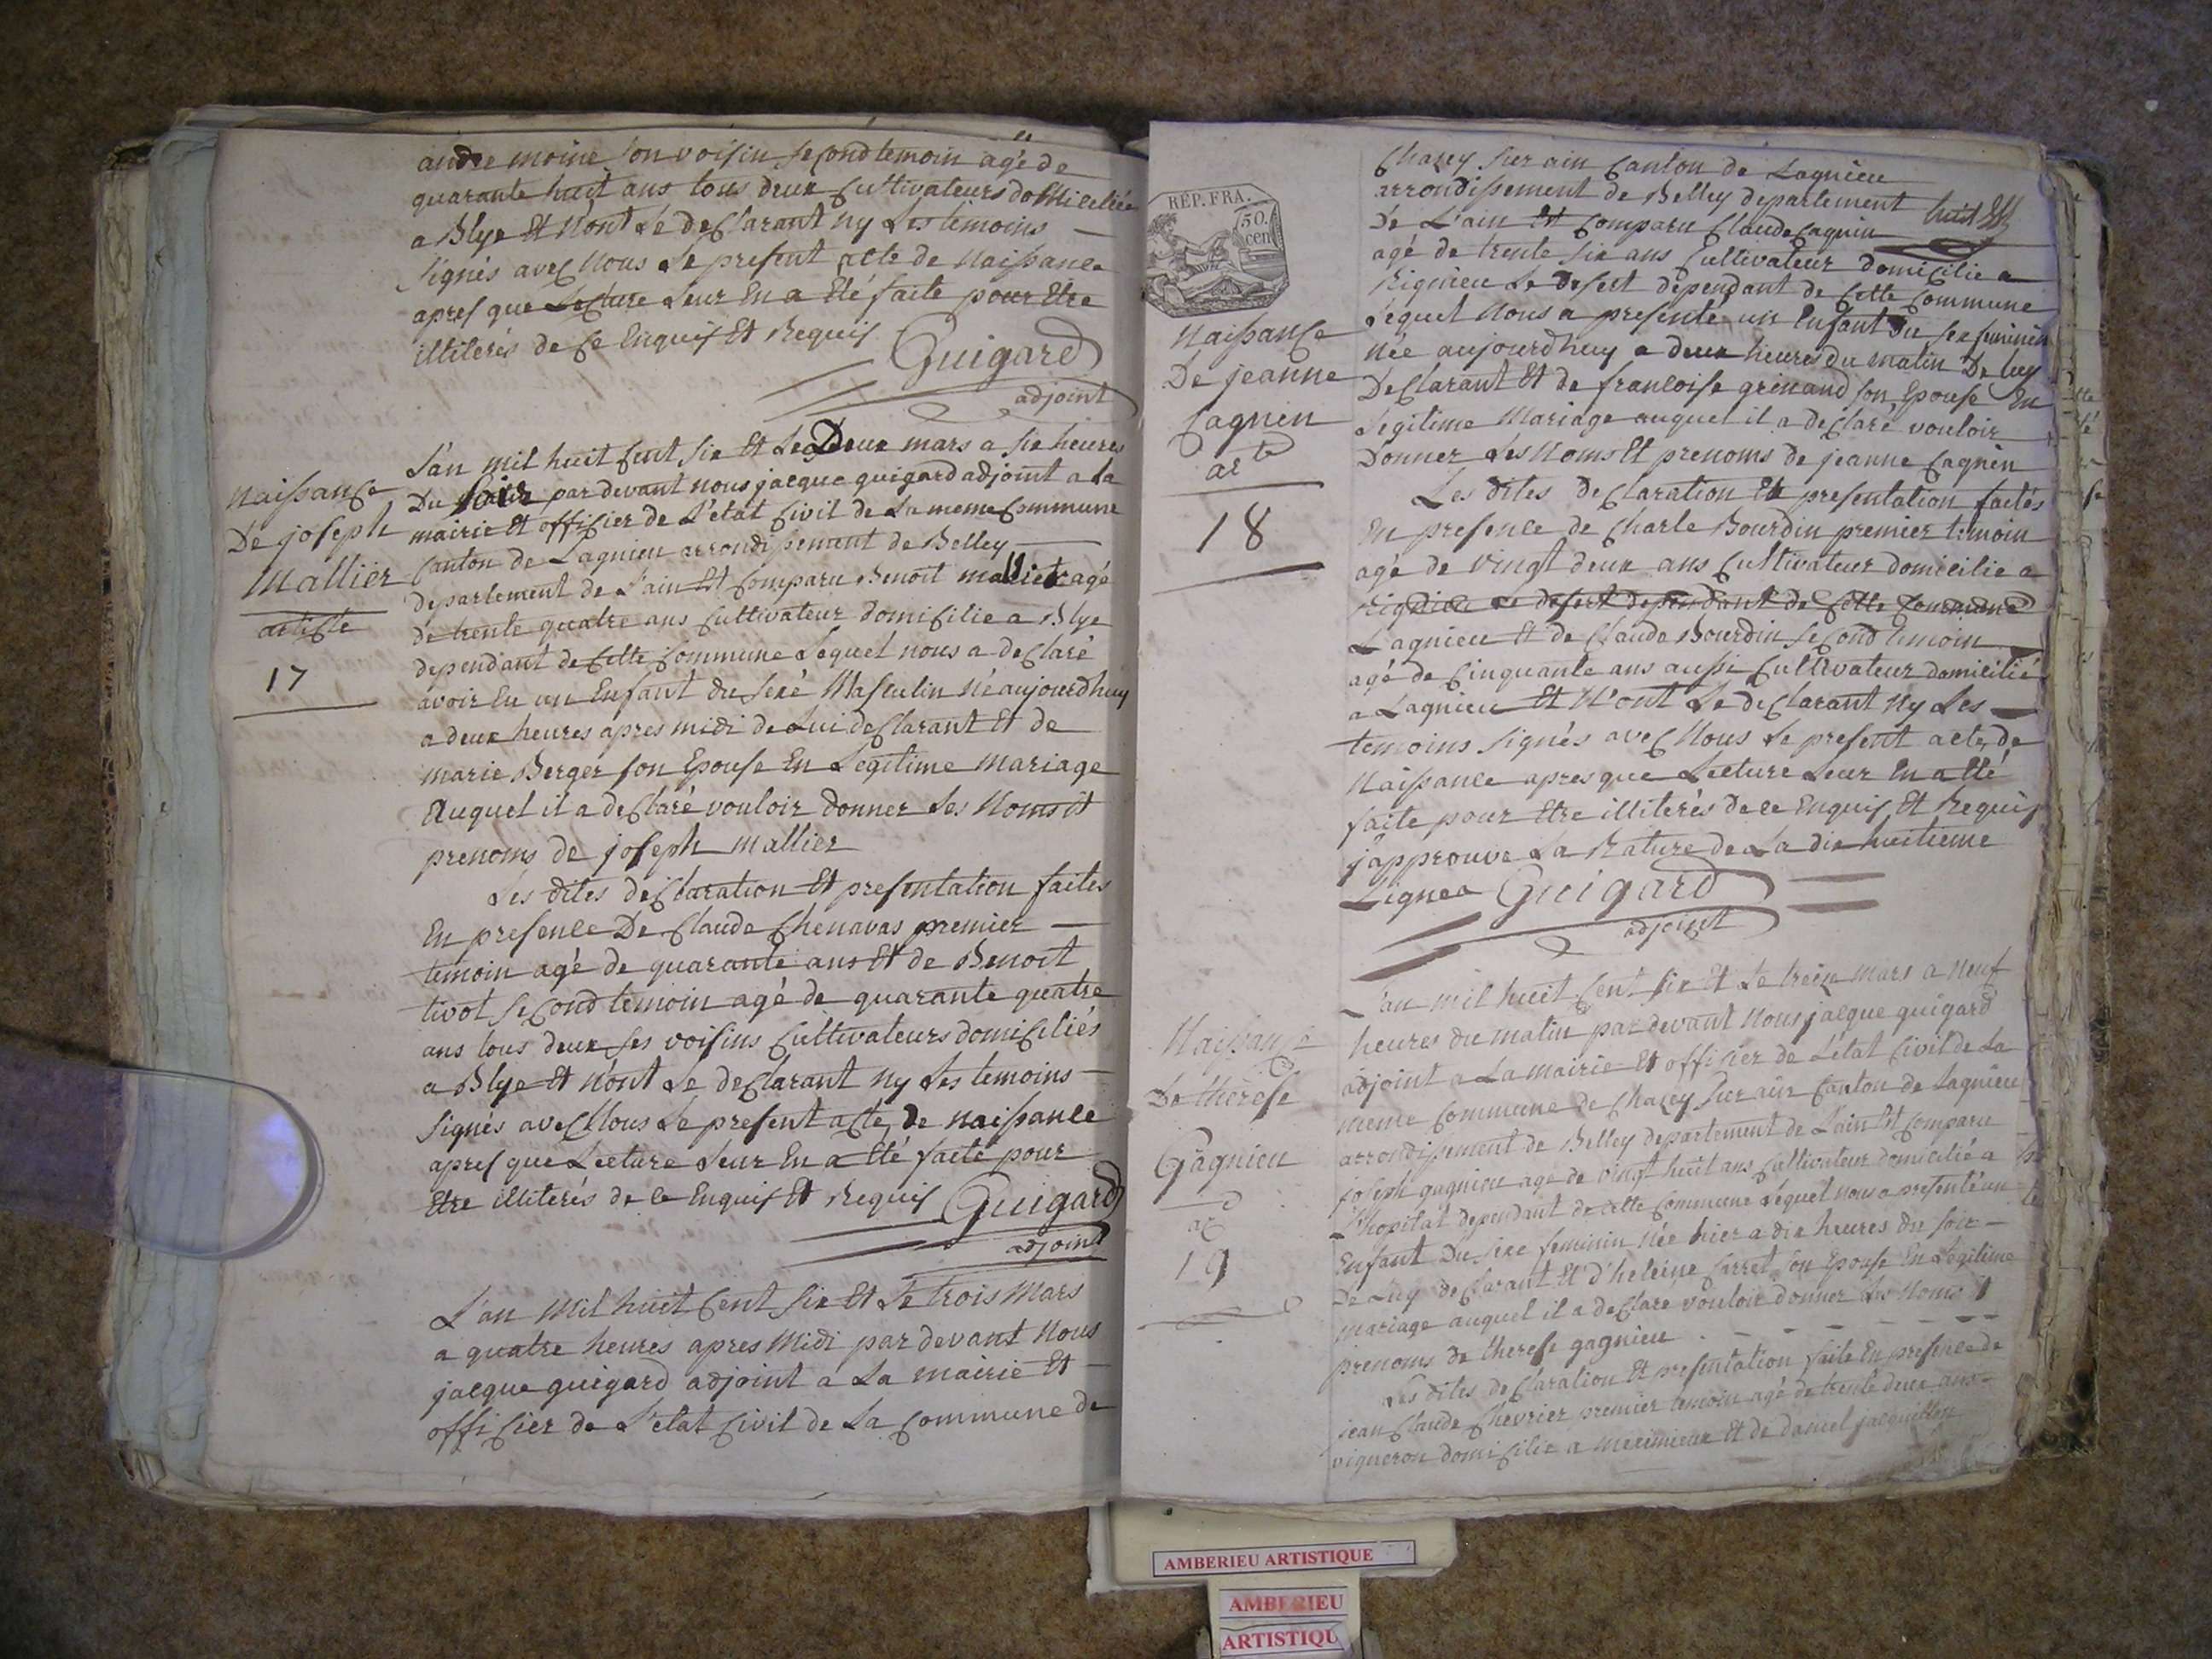 andre moine son voisin second temoin agé de
quarante huit ans tous deux cultivateurs domiciliés
a Blye Et Nont Le declarant ny Les temoins
signés avec Nous Le present acte de Naissance
apres que Lecture Leur En a Eté faite pour Etre
illiterés de ce Enquis Et Requis
Guigard
adjoint
Naissance
De joseph
Mallier
article
17
L'an mil huit cent six Et Le Deux mars a six heures
Du soir par devant nous jacque guigard adjoint a La
mairie et officier de L'etat civil de La meme Commune
Canton de Lagnieu arrondissement de Belley
departement de L'ain Et Comparu Benoit mallier agé
de trente quatre ans cultivateur domicilie a Blye
dependant de cette Commune Lequel nous a declaré
avoir Eu un Enfant du sexe Masculin né aujourdhuy
a deux heures apres midi de Lui declarant Et de
marie Berger son Epouse En Legitime mariage
Auquel il a declaré vouloir donner Les Noms et
prenoms de joseph Mallier
Les dites declaration Et presentation faites
En presence De Claude Chenavas premier
temoin agé de quarante ans Et de Benoit
tivot second temoin agé de quarante quatre
ans tous deux ses voisins cultivateurs domiciliés
a Blye Et N'ont Le declarant ny Les temoins
signés avec Nous Le present acte de naissance
apres que Lecture Leur En a Eté faite pour
Etre illiterés de ce Enquis Et Requis Guigard
adjoint
L'an Mil huit Cent six Et Le trois Mars
a quatre heures apres Midi par devant Nous
jacque guigard adjoint a La mairie Et
officier de L'etat civil de La Commune de
RÉP. FRA.
50.
cen
Naissance
De jeanne
Cagnin
arte
18
Chazey sur ain Canton de Lagnieu
arrondissement de Belley departement
De L'ain Et Comparu Claude Cagnin
agé de trente six ans Cultivateur domicilie a
Rignieu Le desert dependant de cette Commune
Lequel Nous a presenté un Enfant du sexe feminin
Née aujourdhuy a deux heures du matin De luy
Declarant Et de francoise grinand son Epouse En
Legitime Mariage auquel il a declaré vouloir
Donner Les Noms Et prenoms de jeanne Cagnin
Les dites declaration Et presentation faites
En presence de Charle Bourdin premier temoin
agé de vingt deux ans cultivateur domicilie a
Rignieu Le desert dependant de cette commune
Lagnieu Et de Claude Bourdin second temoin
agé de Cinquante ans aussi Cultivateur domicilié
a Lagnieu Et N'ont Le declarant Ny Les
temoins signés avec Nous Le present acte de
Naissance apres que Lecture Leur En a Eté
faite pour Etre illiterés de ce Enquis Et Requis
j'approuve La Rature de La dix huitieme
Lignea Guigard
adjoint
Naissance
De therese
Gagnieu
ar
19
L'an mil huit Cent six Et Le treize mars a neuf
heures du matin par devant Nous jacque guigard
adjoint a La mairie Et officier de L'etat Civil de La
meme Commune de Chazey sur ain Canton de Lagnieu
arrondissement de Belley departement de L'ain Et Comparu
joseph gagnieu agé de vingt huit ans Cultivateur domicilié a
L'hopital dependant de cette Commune Lequel nous a presenté un
Enfant Du sexe feminin Née hier a dix heures du soir
De Luy declarant Et d'heleine son Epouse En Legitime
mariage auquel il a declare vouloir donner Les Noms Et
prenoms de therese gagnieu
Les dites declaration Et presentation faite En presence de
jean Claude Chevrier premier temoin agé de trente deux ans
vigneron domicilie a meximieux Et de daniel
AMBERIEU ARTISTIQUE
AMBERIEU
ARTISTIQU